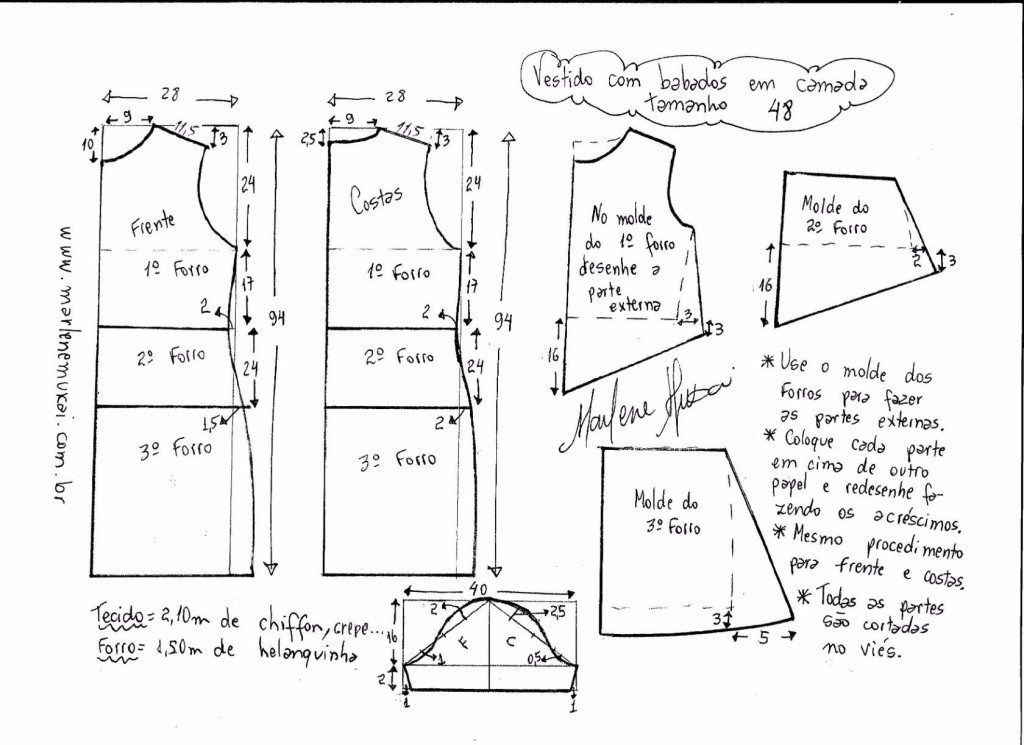 Vestido com babados em camada
tamanho 48
28
9
11,5
10
3
24
Frente
1º Forro
17
2
94
2º Forro
24
1,5
3º Forro
28
9
11,5
2,5
3
24
Costas
1º Forro
17
2
94
2º Forro
24
2
3º Forro
No molde
do 1º forro
desenhe a
parte
externa
3
3
16
Molde do
2º Forro
2
3
16
Marlene Mukai
Molde do
3º Forro
3
5
* Use o molde dos
Forros para fazer
as partes externas.
* Coloque cada parte
em cima de outro
papel e redesenhe fa-
zendo os acréscimos.
* Mesmo procedimento
para frente e costas.
* Todas as partes
são cortadas
no viés.
www.marlenemukai.com.br
Tecido = 2,10m de chiffon, crepe...
Forro = 1,50m de helanquinha
40
2
2,5
16
F
C
1
0,5
2
1
1